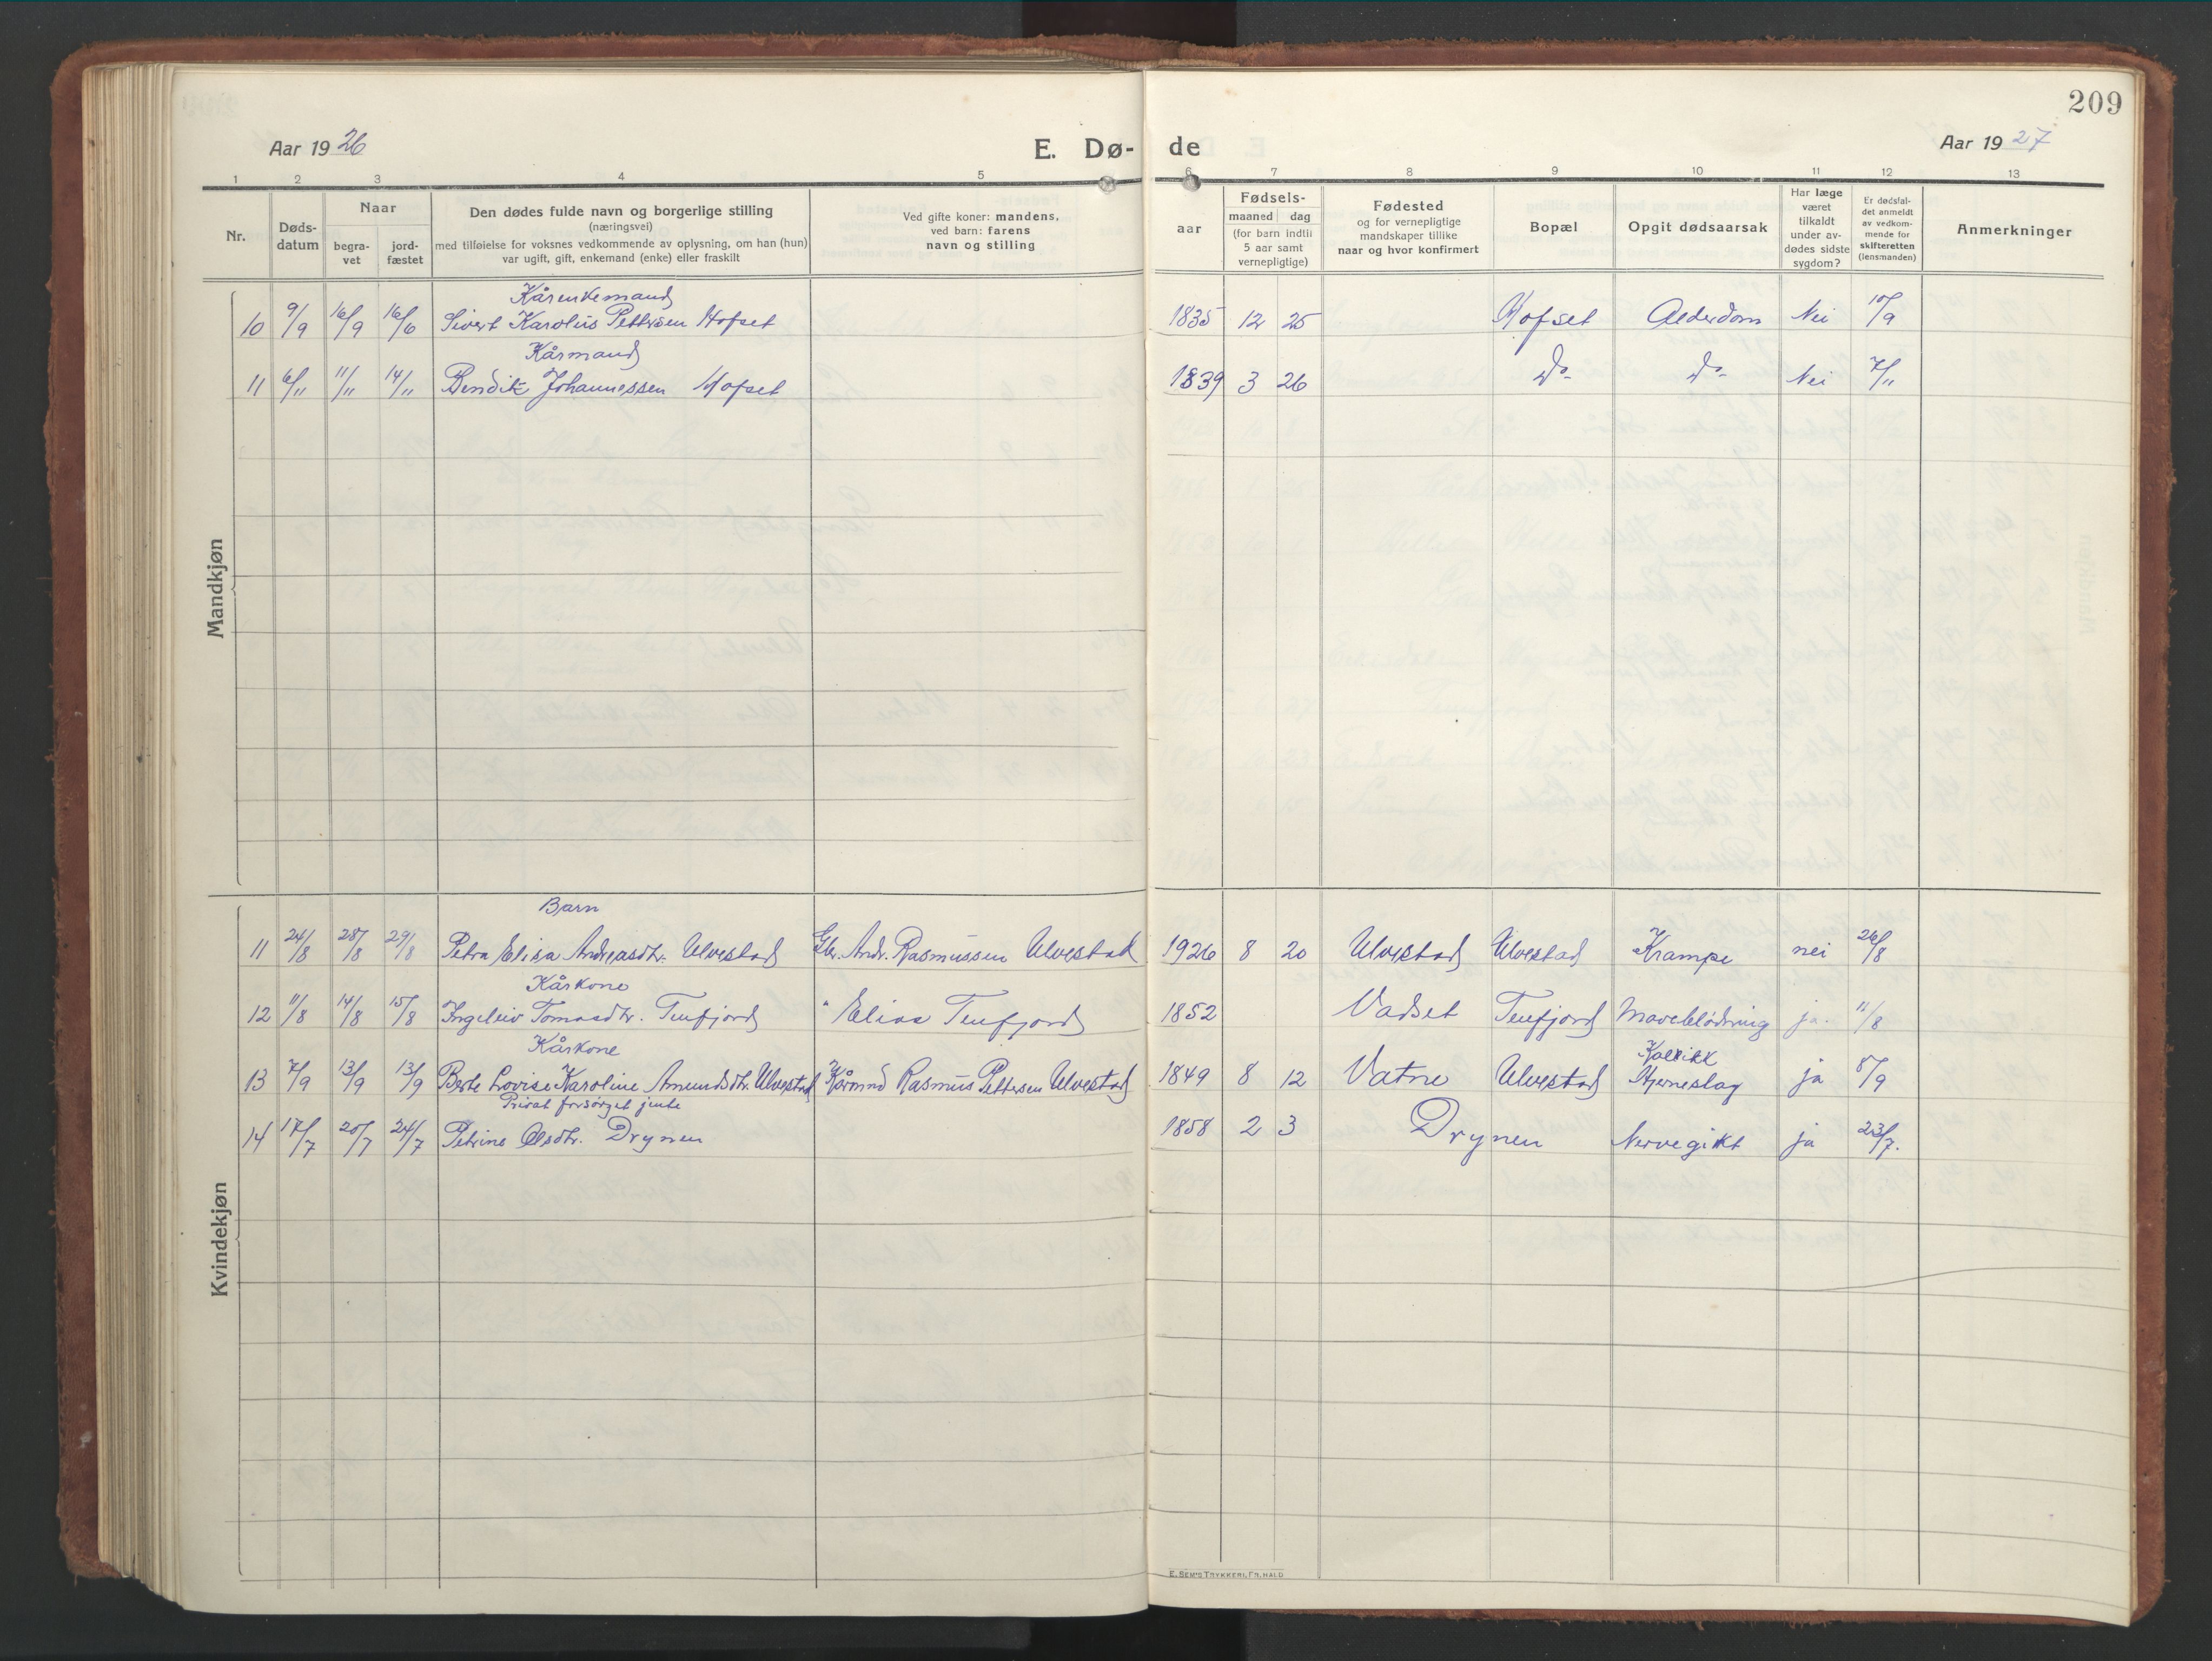 209
Aar 1926 E. Dø- de Aar 1927
1 2 3 4 5 6 7 8 9 10 11 12 13
Nr.
Døds-
datum
Naar
begra-
vet
jord-
fæstet
Den dødes fulde navn og borgerlige stilling
(næringsvei)
med tilføielse for voksnes vedkommende av oplysning, om han (hun)
var ugift, gift, enkemand (enke) eller fraskilt
Ved gifte koner: mandens,
ved barn: farens
navn og stilling
aar
Fødsels-
maaned dag
(for barn indtil
5 aar samt
vernepligtige)
Fødested
og for vernepligtige
mandskaper tillike
naar og hvor konfirmert
Bopæl
Opgit dødsaarsak
Har læge
været
tilkaldt
under av-
dødes sidste
sygdom?
Er dødsfal-
det anmeldt
av vedkom-
mende for
skifteretten
(lensmanden)
Anmerkninger
Mandkjøn
Kårenkemand
10 9/9 16/9 16/6 Sivert Karolus Pettersen Hofset 1835 12 25 Hofset Alderdom Nei 10/9
Kårmand
11 6/11 11/11 14/11 Bendik Johannessen Hofset 1839 3 26 Do Do Nei 7/11
Kvindekjøn
Barn
11 24/8 28/8 29/8 Petra Elisa Andreasdtr. Ulvestad Gbr. Andr. Rasmussen Ulvestad 1926 8 20 Ulvestad Ulvestad Krampe nei 26/8
Kårkone
12 11/8 14/8 15/8 Ingeleiv Tomasdtr. Tenfjord " Elias Tenfjord 1852 Vadset Tenfjord Maveblødning ja. 11/8
Kårkone
13 7/9 13/9 13/9 Berte Lovise Karoline Amundsdtr. Ulvestad Kårmnd Rasmus Pettersen Ulvestad 1849 8 12 Vatne Ulvestad Hjerneslag ja 8/9
Privat forsørget jente
14 17/7 20/7 24/7 Petrine Olsdtr. Drynen 1858 2 3 Drynen Nervegikt ja 23/7.
E. SEM'S TRYKKERI, FR.HALD